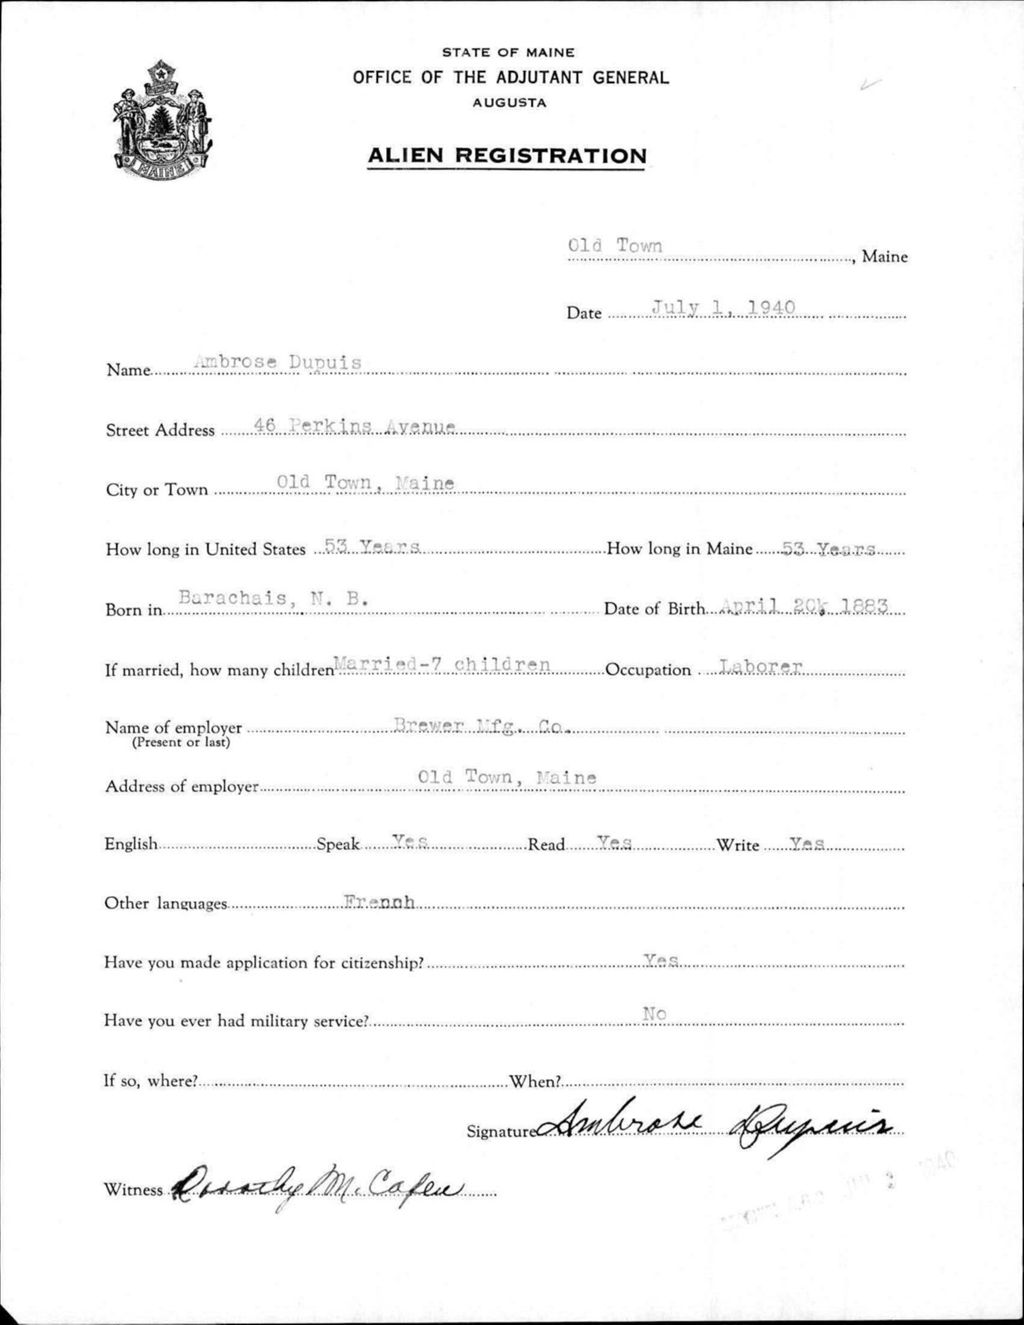 STATE OF MAINE
OFFICE OF THE ADJUTANT GENERAL
AUGUSTA
ALIEN REGISTRATION
MAINE
Old Town, Maine
Date July 1, 1940
Name Ambrose Dupuis
Street Address 46 Perkins Avenue
City or Town Old Town, Maine
How long in United States 53 Years How long in Maine 53 Years
Born in Barachais, N. B. Date of Birth April 20, 1883
If married, how many children Married-7 children Occupation Laborer
Name of employer Brewer Mfg. Co.
(Present or last)
Address of employer Old Town, Maine
English Speak Yes Read Yes Write Yes
Other languages Frennh
Have you made application for citizenship? Yes
Have you ever had military service? No
If so, where? When?
Signature Ambrose Dupuis
Witness Dorothy M. Capen